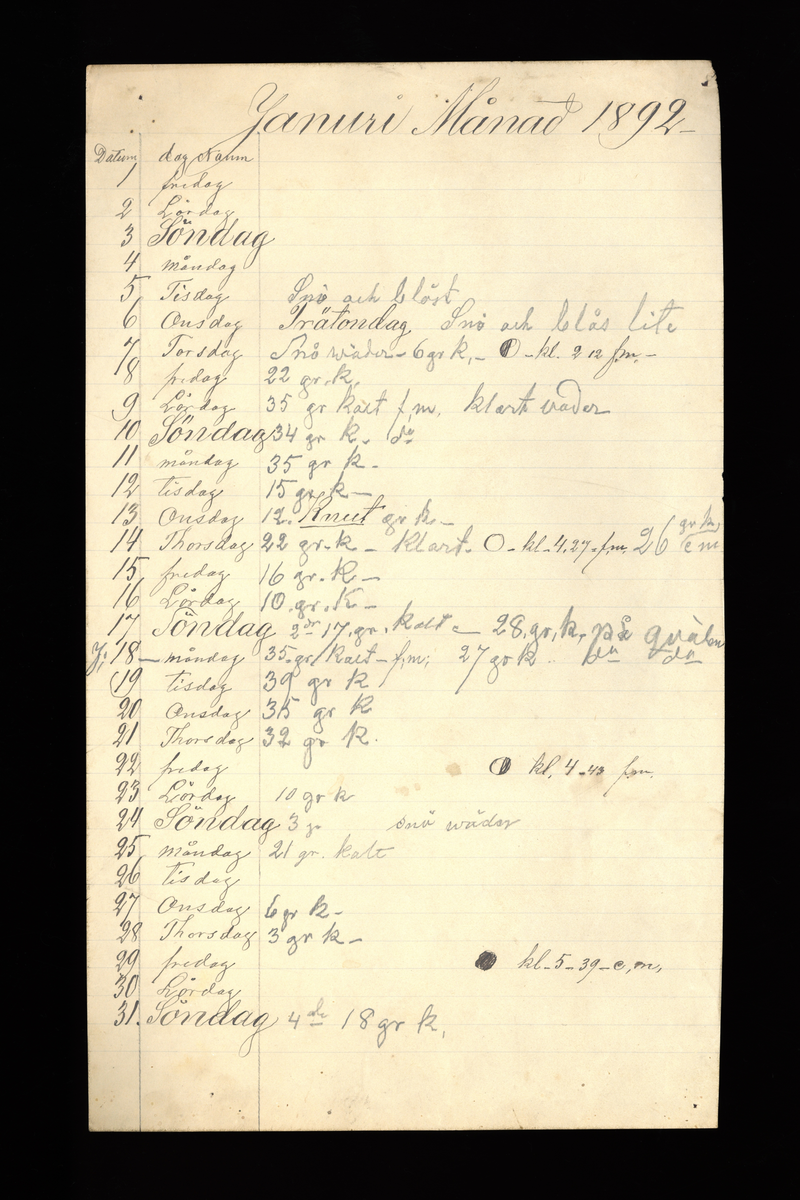 Januri Månad 1892
Datum dag Namn
1 fredag
2 Lördag
3 Söndag
4 måndag
5 Tisdag Snö och blåst
6 Onsdag Trätondag Snö och blås lite
7 Torsdag Snö wäder - 6 gr k, - kl. 2 12 f.m. -
8 fredag 22 gr. k.
9 Lördag 35 gr kalt f.m. klart väder
10 Söndag 34 gr k. do
11 måndag 35 gr k -
12 tisdag 15 gr. k -
13 Onsdag 12. Knut gr k -
14 Thorsdag 22 gr. k - klart. - kl - 4,27 - f.m. 26 gr k, e m
15 fredag 16 gr. K -
16 Lördag 10. gr. K -
17 Söndag 2dr 17. gr. kalt - 28. gr. k, på qvälen
18 - måndag 35. gr. kalt - f.m; 27 gr k do do
19 tisdag 39 gr k
20 Onsdag 35 gr K
21 Thorsdag 32 gr K.
22 fredag kl. 4 - 43 f.m.
23 Lördag 10 gr k
24 Söndag 3 gr snö wäder
25 måndag 21 gr. kalt
26 tisdag
27 Onsdag 6 gr k -
28 Thorsdag 3 gr k -
29 fredag kl - 5 - 39 - e.m.
30 Lördag
31. Söndag 4de 18 gr k,